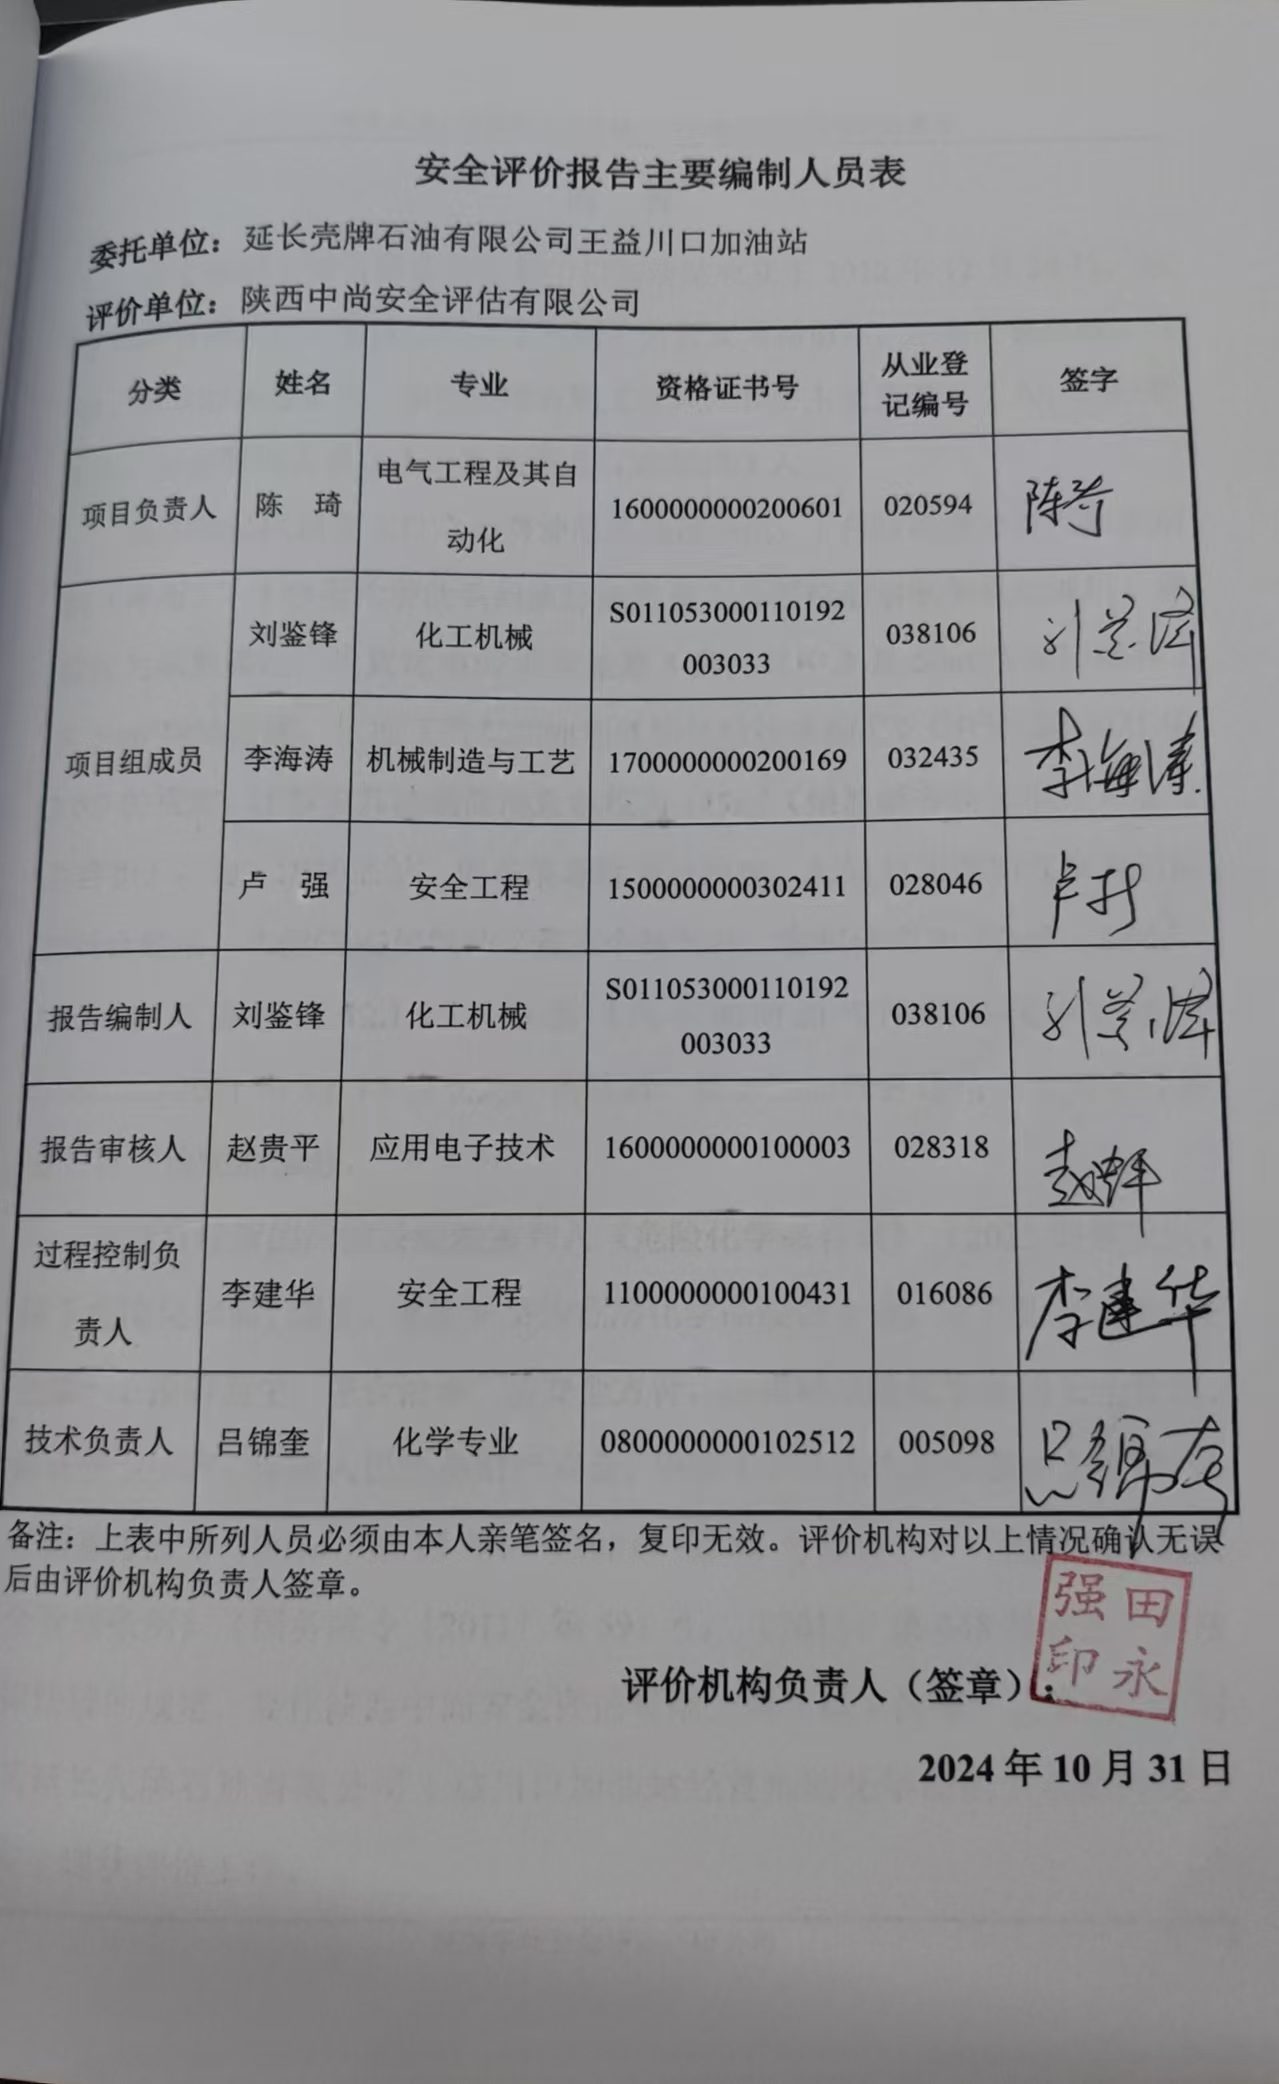 安全评价报告主要编制人员表
委托单位：延长壳牌石油有限公司王益川口加油站
评价单位：陕西中尚安全评估有限公司
分类 姓名 专业 资格证书号 从业登记编号 签字
项目负责人 陈 琦 电气工程及其自动化 1600000000200601 020594 陈琦
项目组成员 刘鉴锋 化工机械 S011053000110192003033 038106 刘鉴锋
李海涛 机械制造与工艺 1700000000200169 032435 李海涛
卢 强 安全工程 1500000000302411 028046 卢强
报告编制人 刘鉴锋 化工机械 S011053000110192003033 038106 刘鉴锋
报告审核人 赵贵平 应用电子技术 1600000000100003 028318 赵贵平
过程控制负责人 李建华 安全工程 1100000000100431 016086 李建华
技术负责人 吕锦奎 化学专业 0800000000102512 005098 吕锦奎
备注：上表中所列人员必须由本人亲笔签名，复印无效。评价机构对以上情况确认无误
后由评价机构负责人签章。
评价机构负责人（签章）：
田永强印
2024 年 10 月 31 日